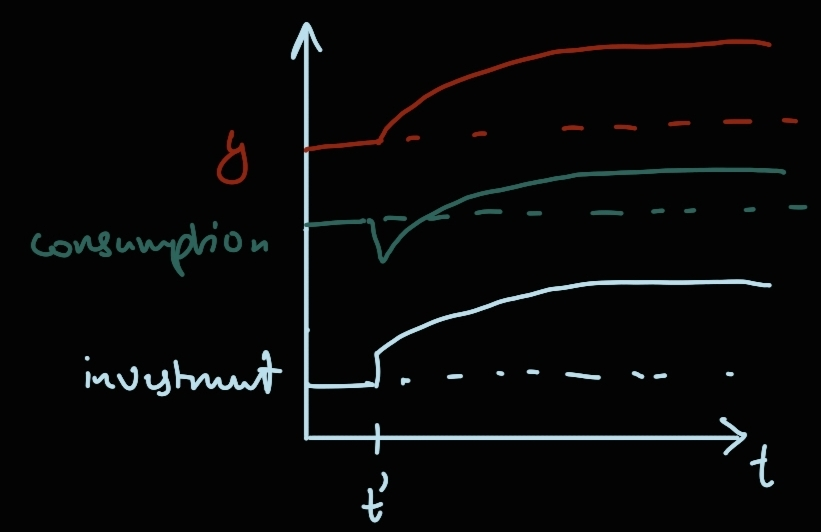 y
consumption
investment
t
t'